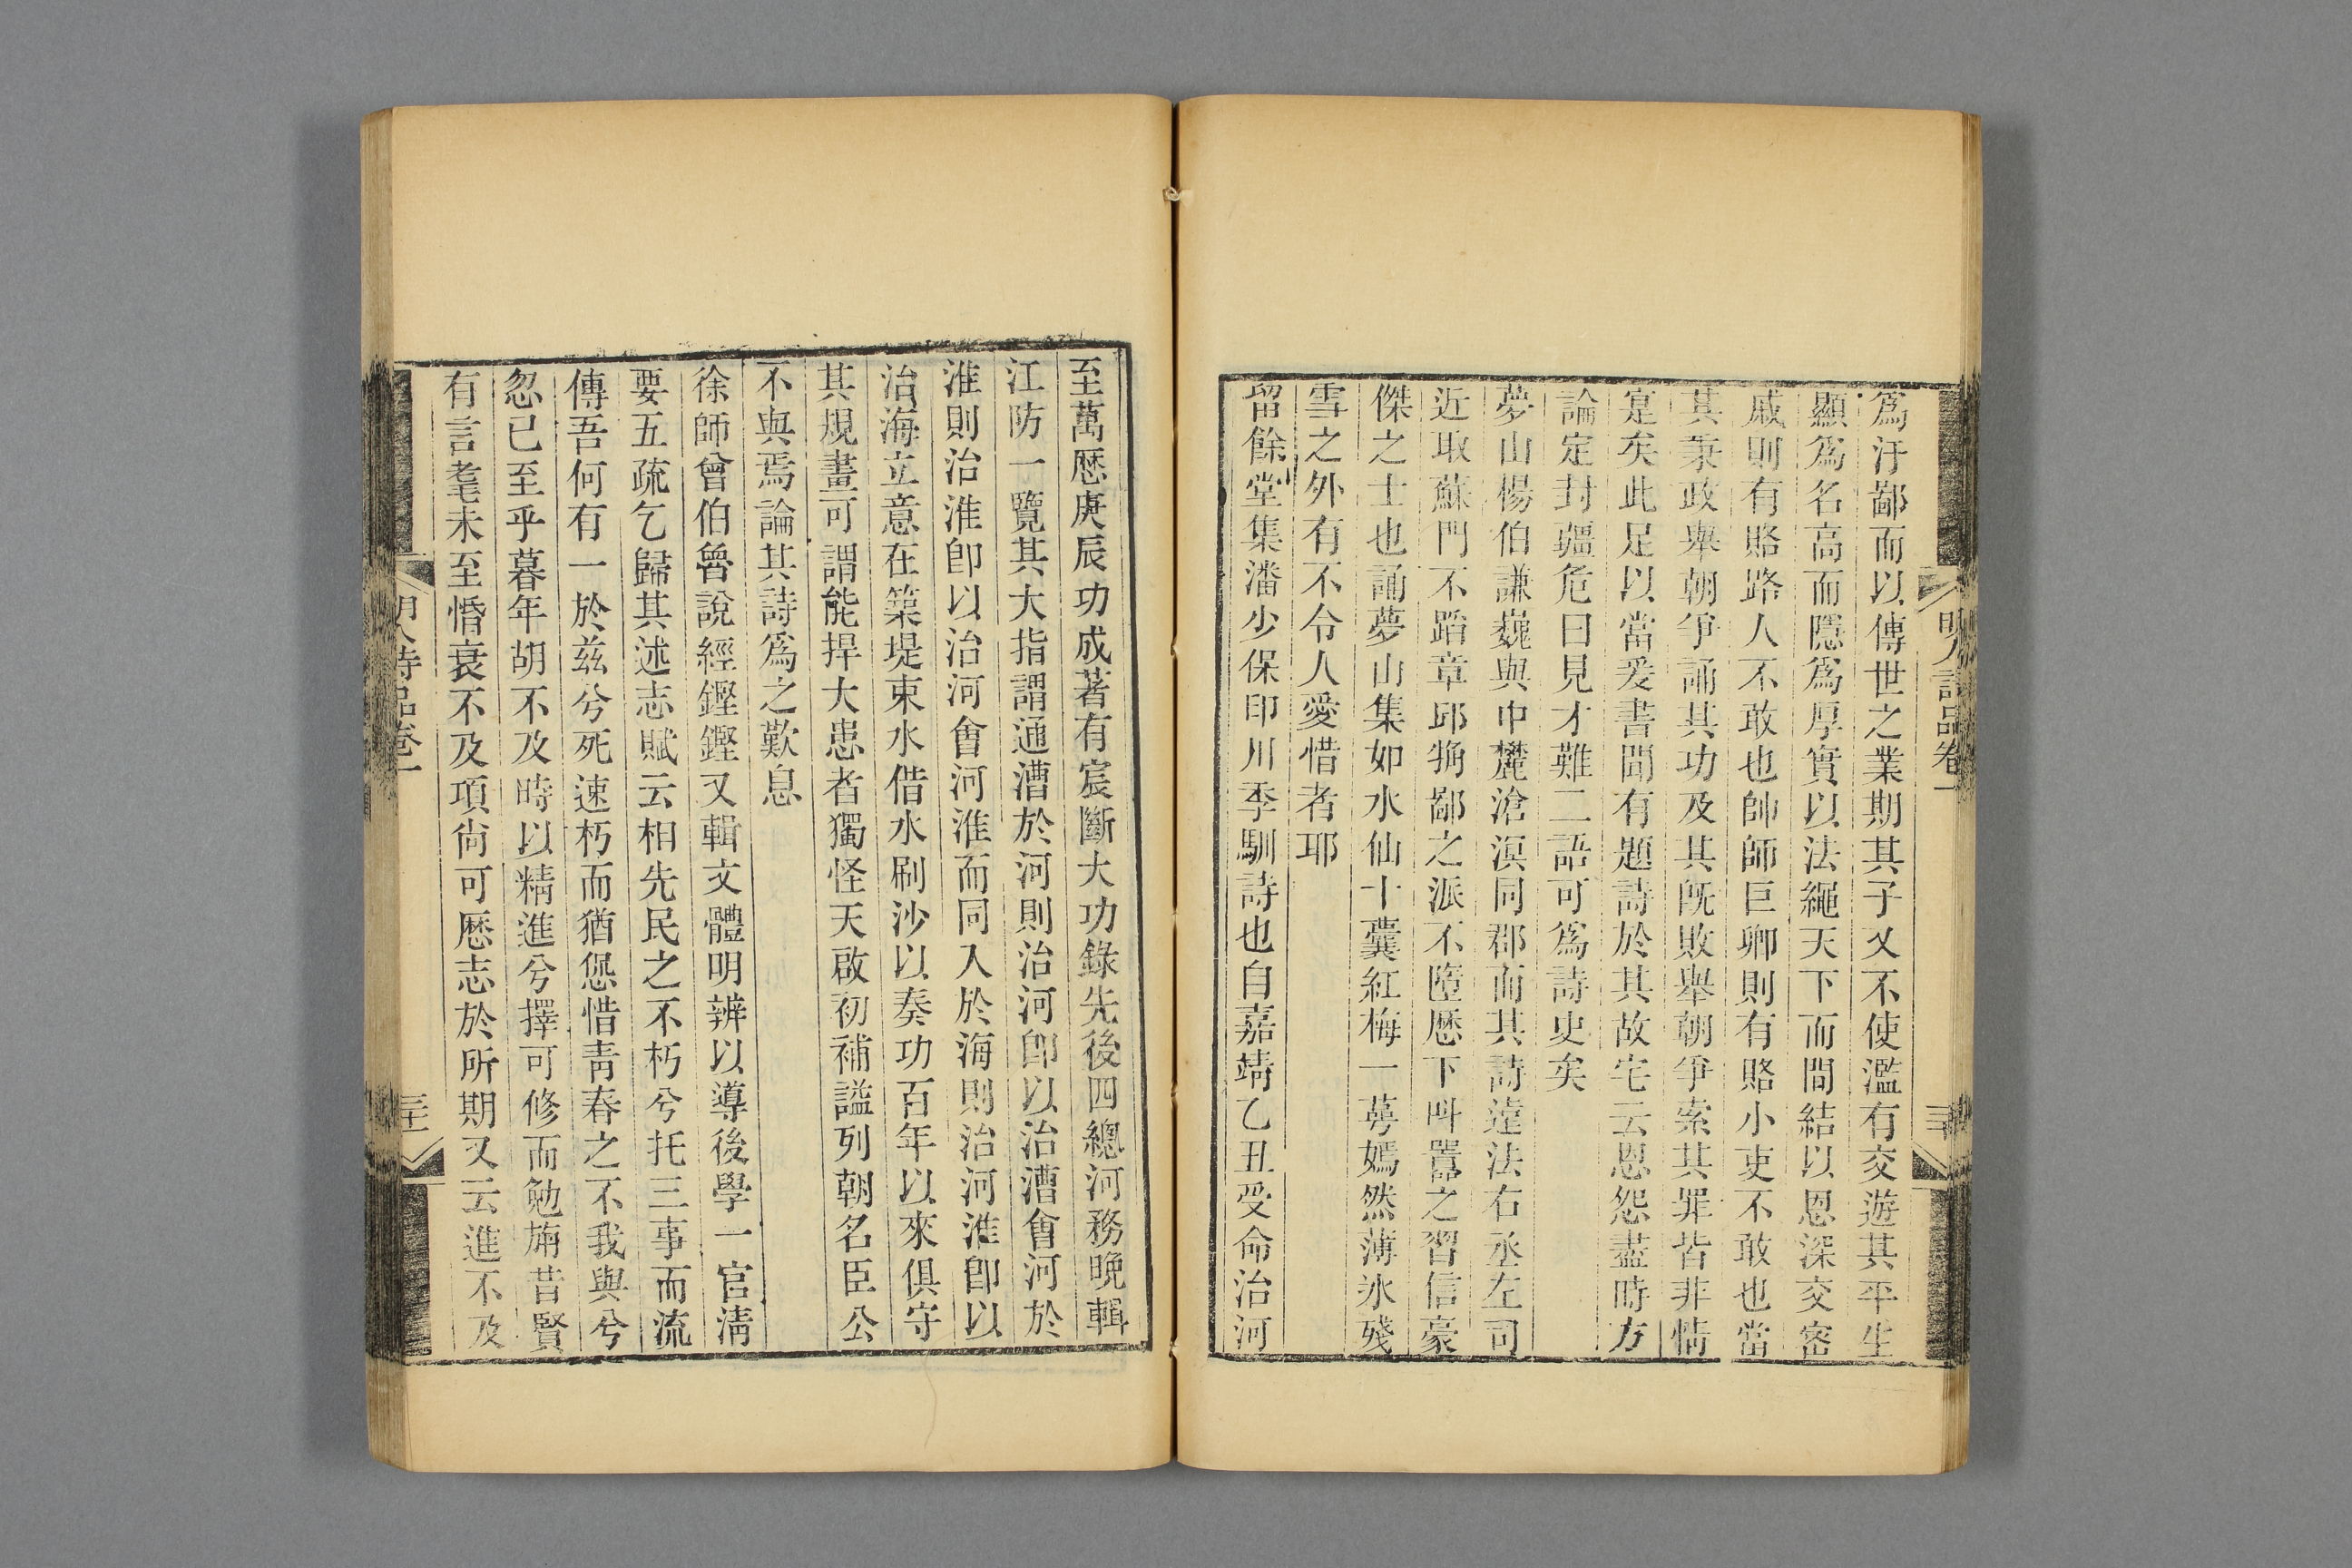 明人詩品卷一
三十
爲汙鄙而以傳世之業期其子又不使濫有交遊其平生
顯爲名高而隱爲厚實以法繩天下而間結以恩深交密
戚則有賂路人不敢也帥師巨卿則有賂小吏不敢也當
其秉政舉朝爭誦其功及其旣敗舉朝爭索其罪皆非情
寔矣此足以當爰書聞有題詩於其故宅云恩怨盡時方
論定封疆危日見才難二語可爲詩史矣
夢山楊伯謙巍與中麓滄溟同郡而其詩遠法右丞左司
近取蘇門不蹈章邱觕鄙之派不墮歷下叫囂之習信豪
傑之士也誦夢山集如水仙十囊紅梅一萼嫣然薄氷殘
雪之外有不令人愛惜者耶
留餘堂集潘少保印川季馴詩也自嘉靖乙丑受命治河
至萬厯庚辰功成著有宸斷大功錄先後四總河務晩輯
江防一覽其大指謂通漕於河則治河卽以治漕會河於
淮則治淮卽以治河會河淮而同入於海則治河淮卽以
治海立意在築堤束水借水刷沙以奏功百年以來俱守
其規畫可謂能捍大患者獨怪天啟初補謚列朝名臣公
不與焉論其詩爲之歎息
徐師曾伯魯說經鏗鏗又輯文體明辨以導後學一官淸
要五疏乞歸其述志賦云相先民之不朽兮托三事而流
傳吾何有一於兹兮死速朽而猶愆惜靑春之不我與兮
忽已至乎暮年胡不及時以精進兮擇可修而勉旃昔賢
有言耄未至惛衰不及項尙可厯志於所期又云進不及
明人詩品卷一
三十